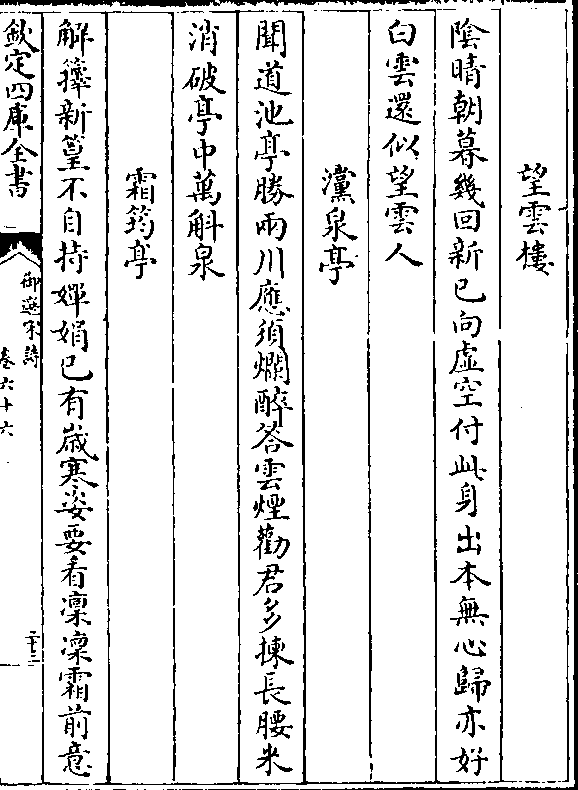 望雲樓
陰晴朝暮幾回新已向虛空付此身出本無心歸亦好
白雲還似望雲人
灙泉亭
聞道池亭勝兩川應須爛醉答雲煙勸君多揀長腰米
消破亭中萬斛泉
霜筠亭
解籜新篁不自持嬋娟已有歲寒姿要看凜凜霜前意
欽定四庫全書
御選宋詩
卷六十六
二十三